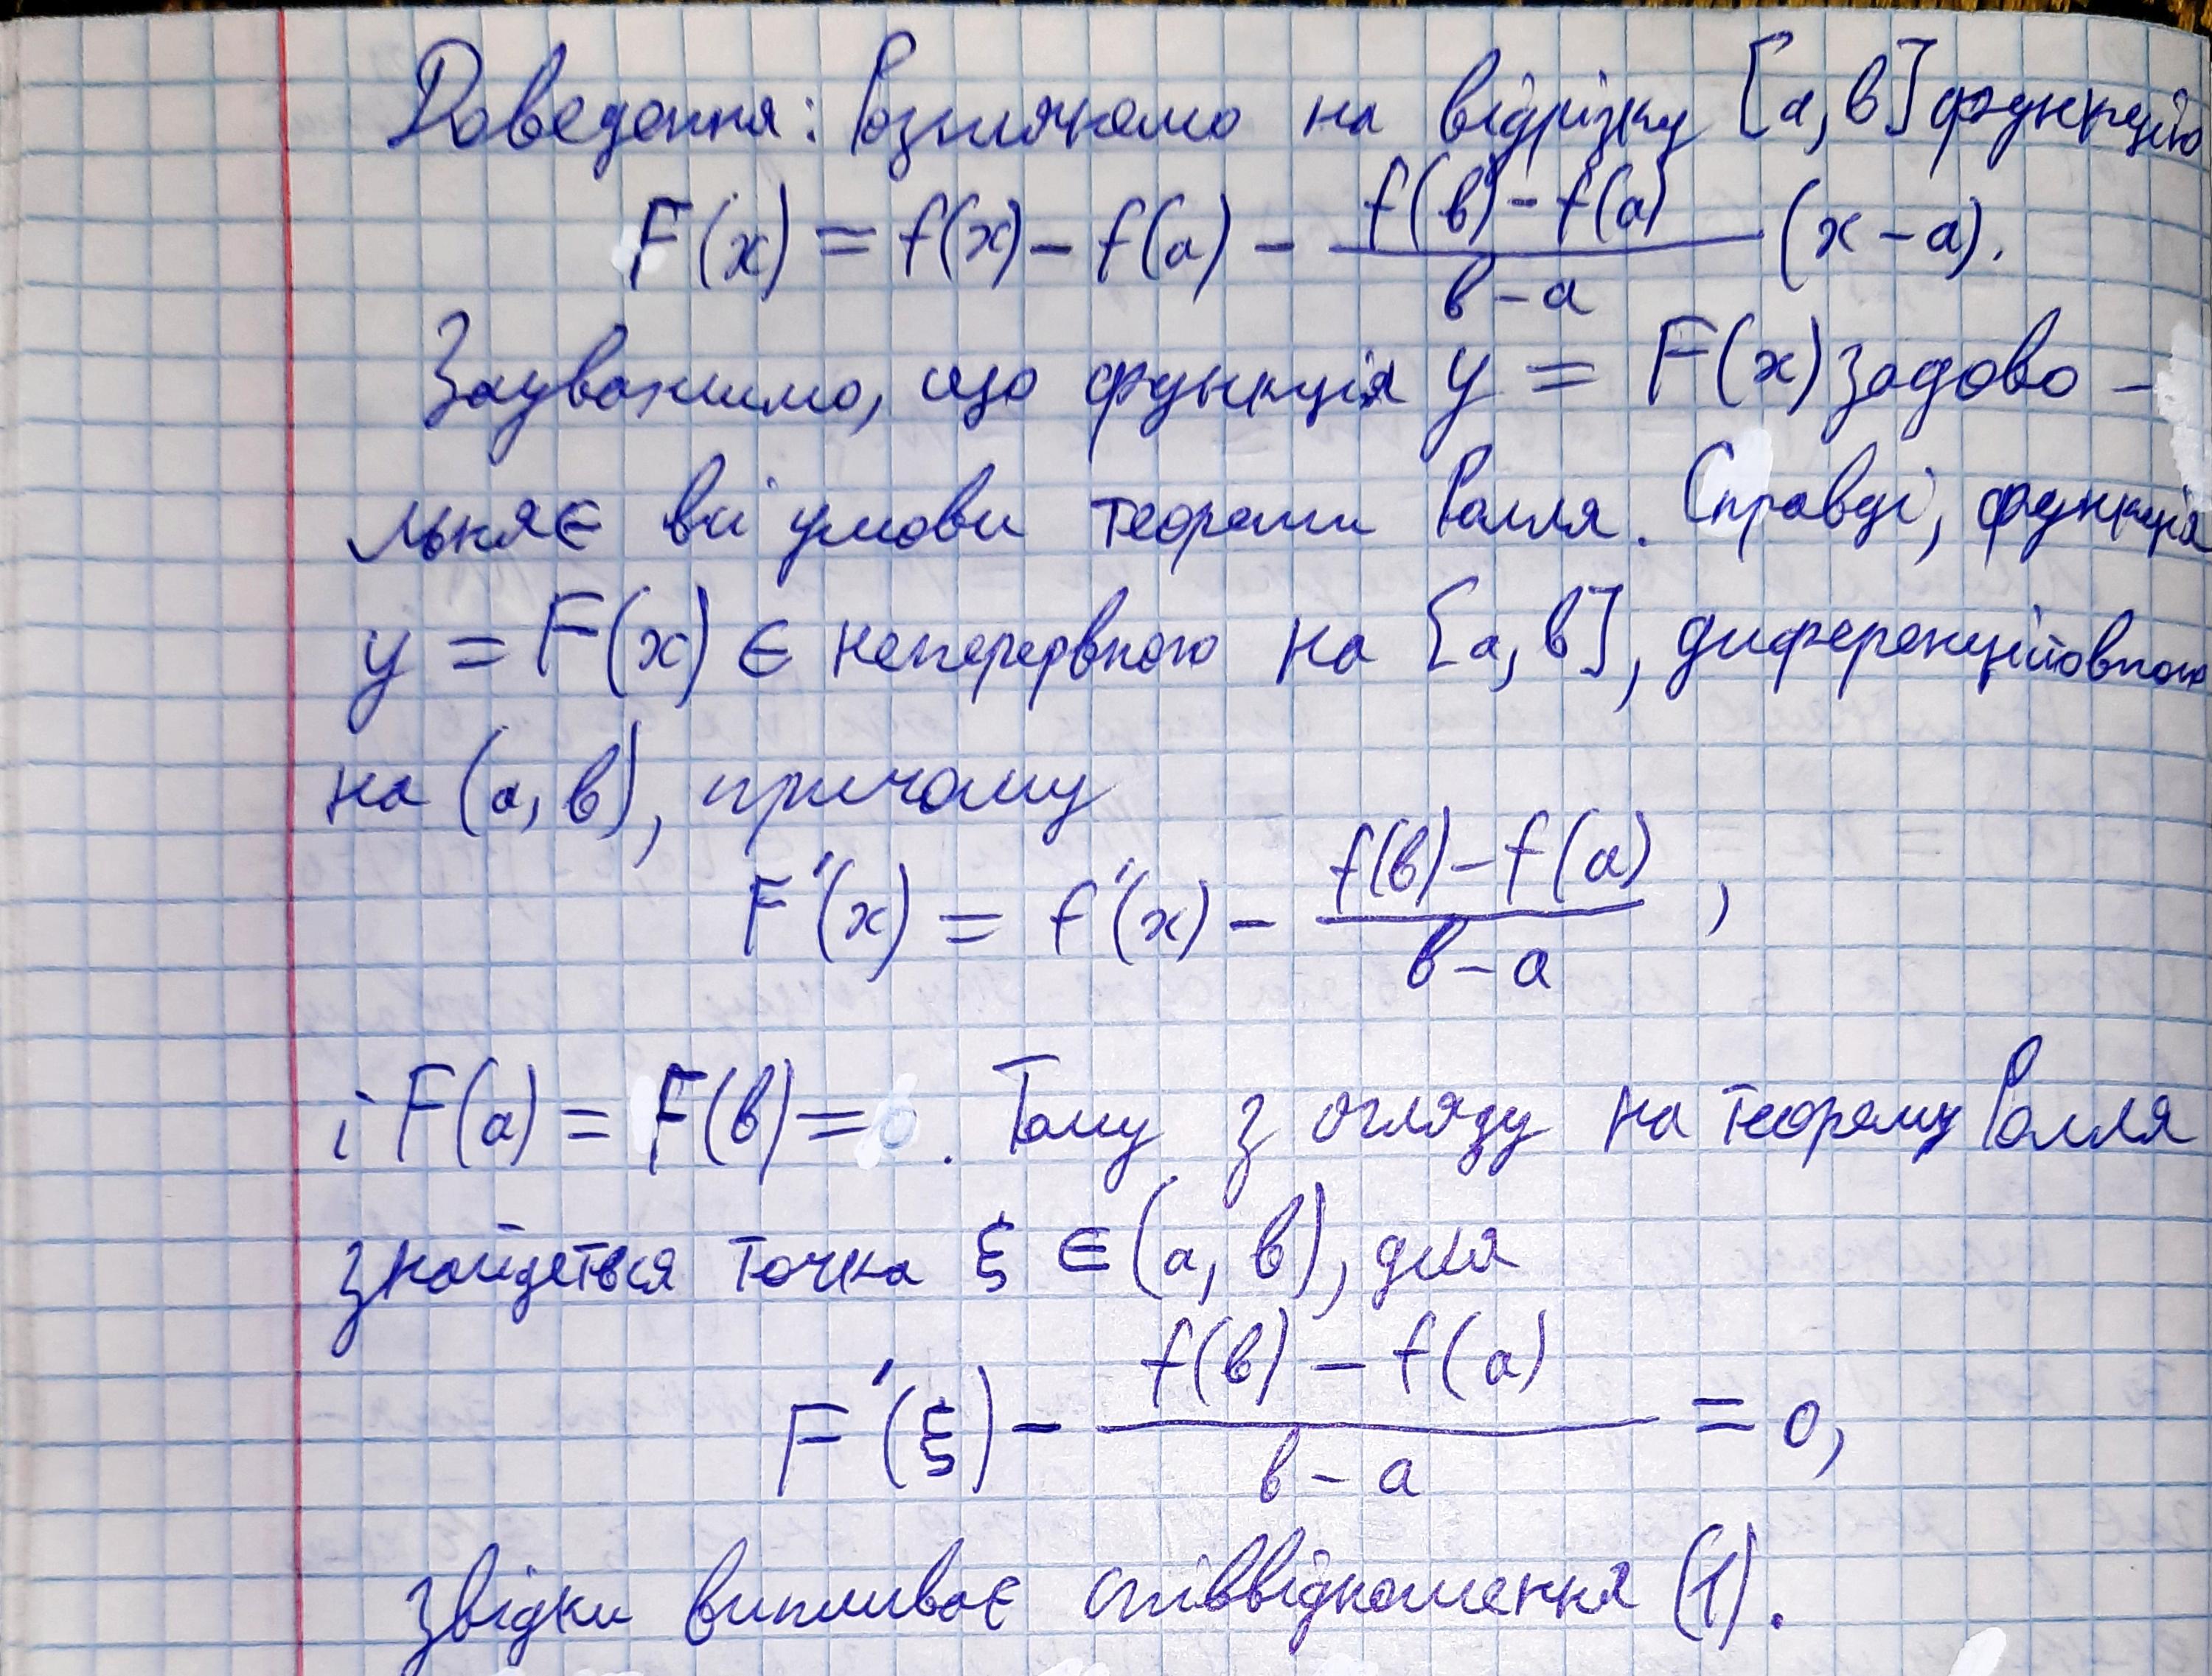 Доведення: Розглянемо на відрізку [a, b] функцію
F(x) = f(x) - f(a) - \frac{f(b) - f(a)}{b - a} (x - a).
Зауважимо, що функція y = F(x) задово-
льняє всі умови теореми Ролля. Справді, функція
y = F(x) є неперервною на [a, b], диференційовною
на (a, b), причому
F'(x) = f'(x) - \frac{f(b) - f(a)}{b - a},
і F(a) = F(b) = 0. Тому з огляду на теорему Ролля
знайдеться точка ξ ∈ (a, b), для
F'(ξ) - \frac{f(b) - f(a)}{b - a} = 0,
звідки випливає співвідношення (1).